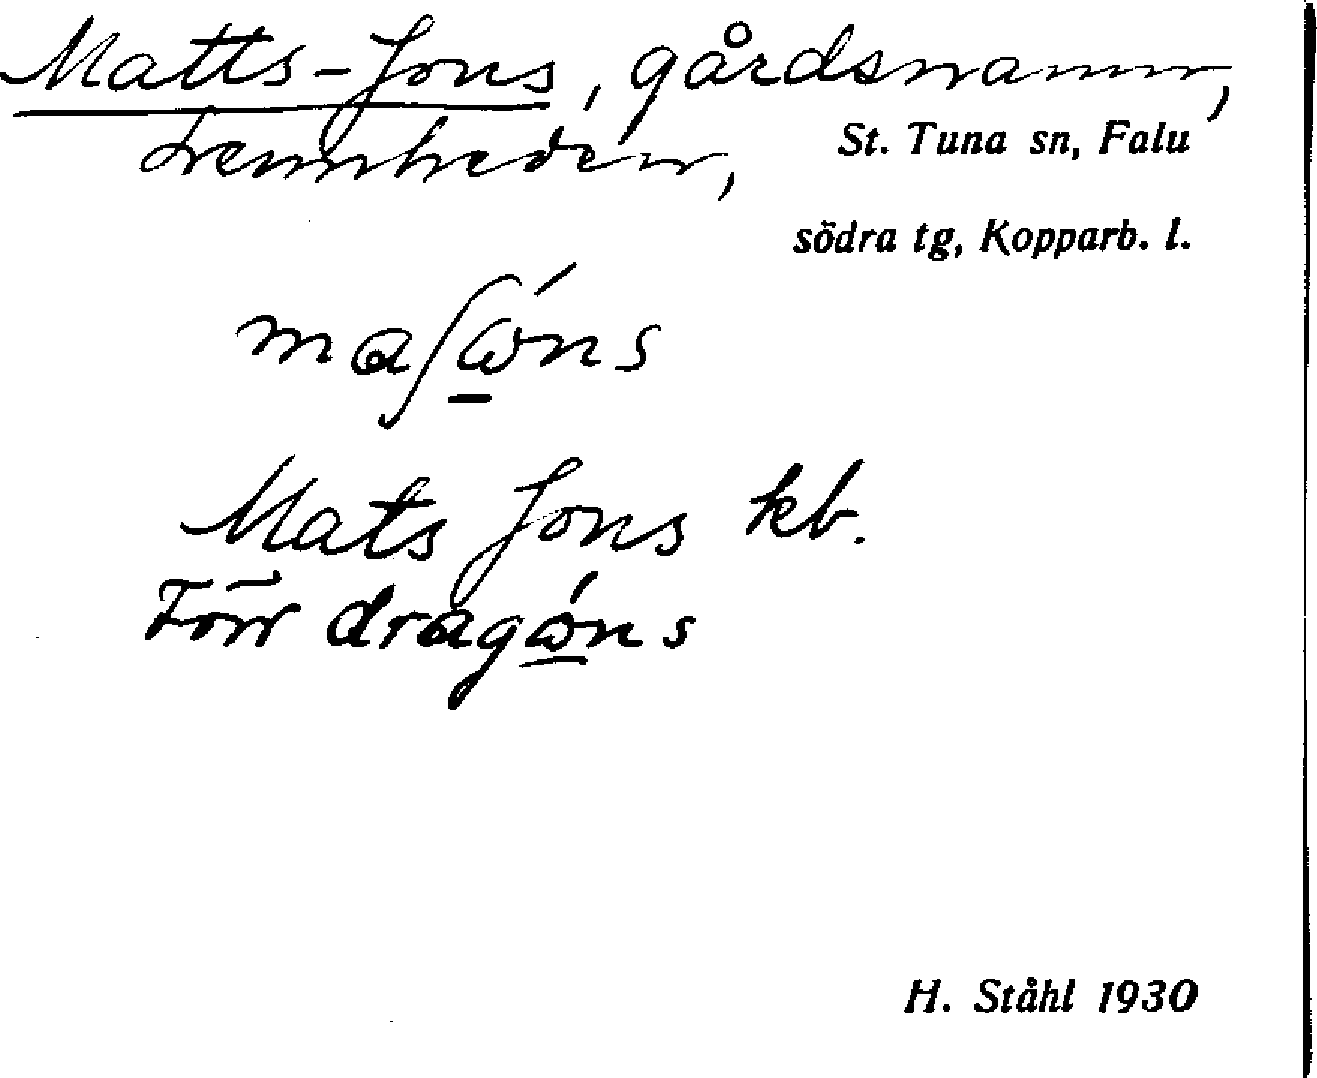 Matts-Jons, gårdsnamn,
Tennheden,
St. Tuna sn, Falu
södra tg, Kopparb. l.
maʃώns
Mats Jons kb.
Förr dragώns
H. Ståhl 1930